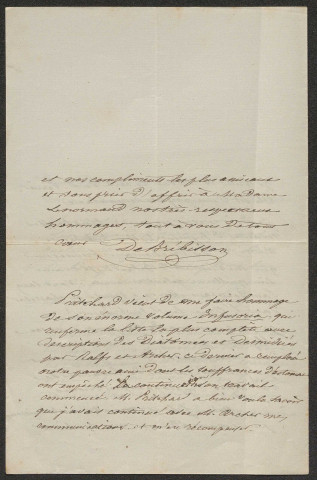 et nos compliments les plus amicaux
et vous prier d'offrir à Madame
Lenormand nos très respectueux
hommages, tout à vous de tout
cœur De Brébisson
Pritchard vient de me faire hommage
de son énorme volume Infusoria qui
renferme la liste la plus complète avec
descriptions des Diatomées et Desmidiées
par Ralfs et Archer, ce dernier a complété
notre pauvre ami dont les souffrances
ont empêché la continuation travail
commencé. M. Pritchard a bien voulu
que j'avais continué avec M. Archer mes
communications et m'en récompenser.